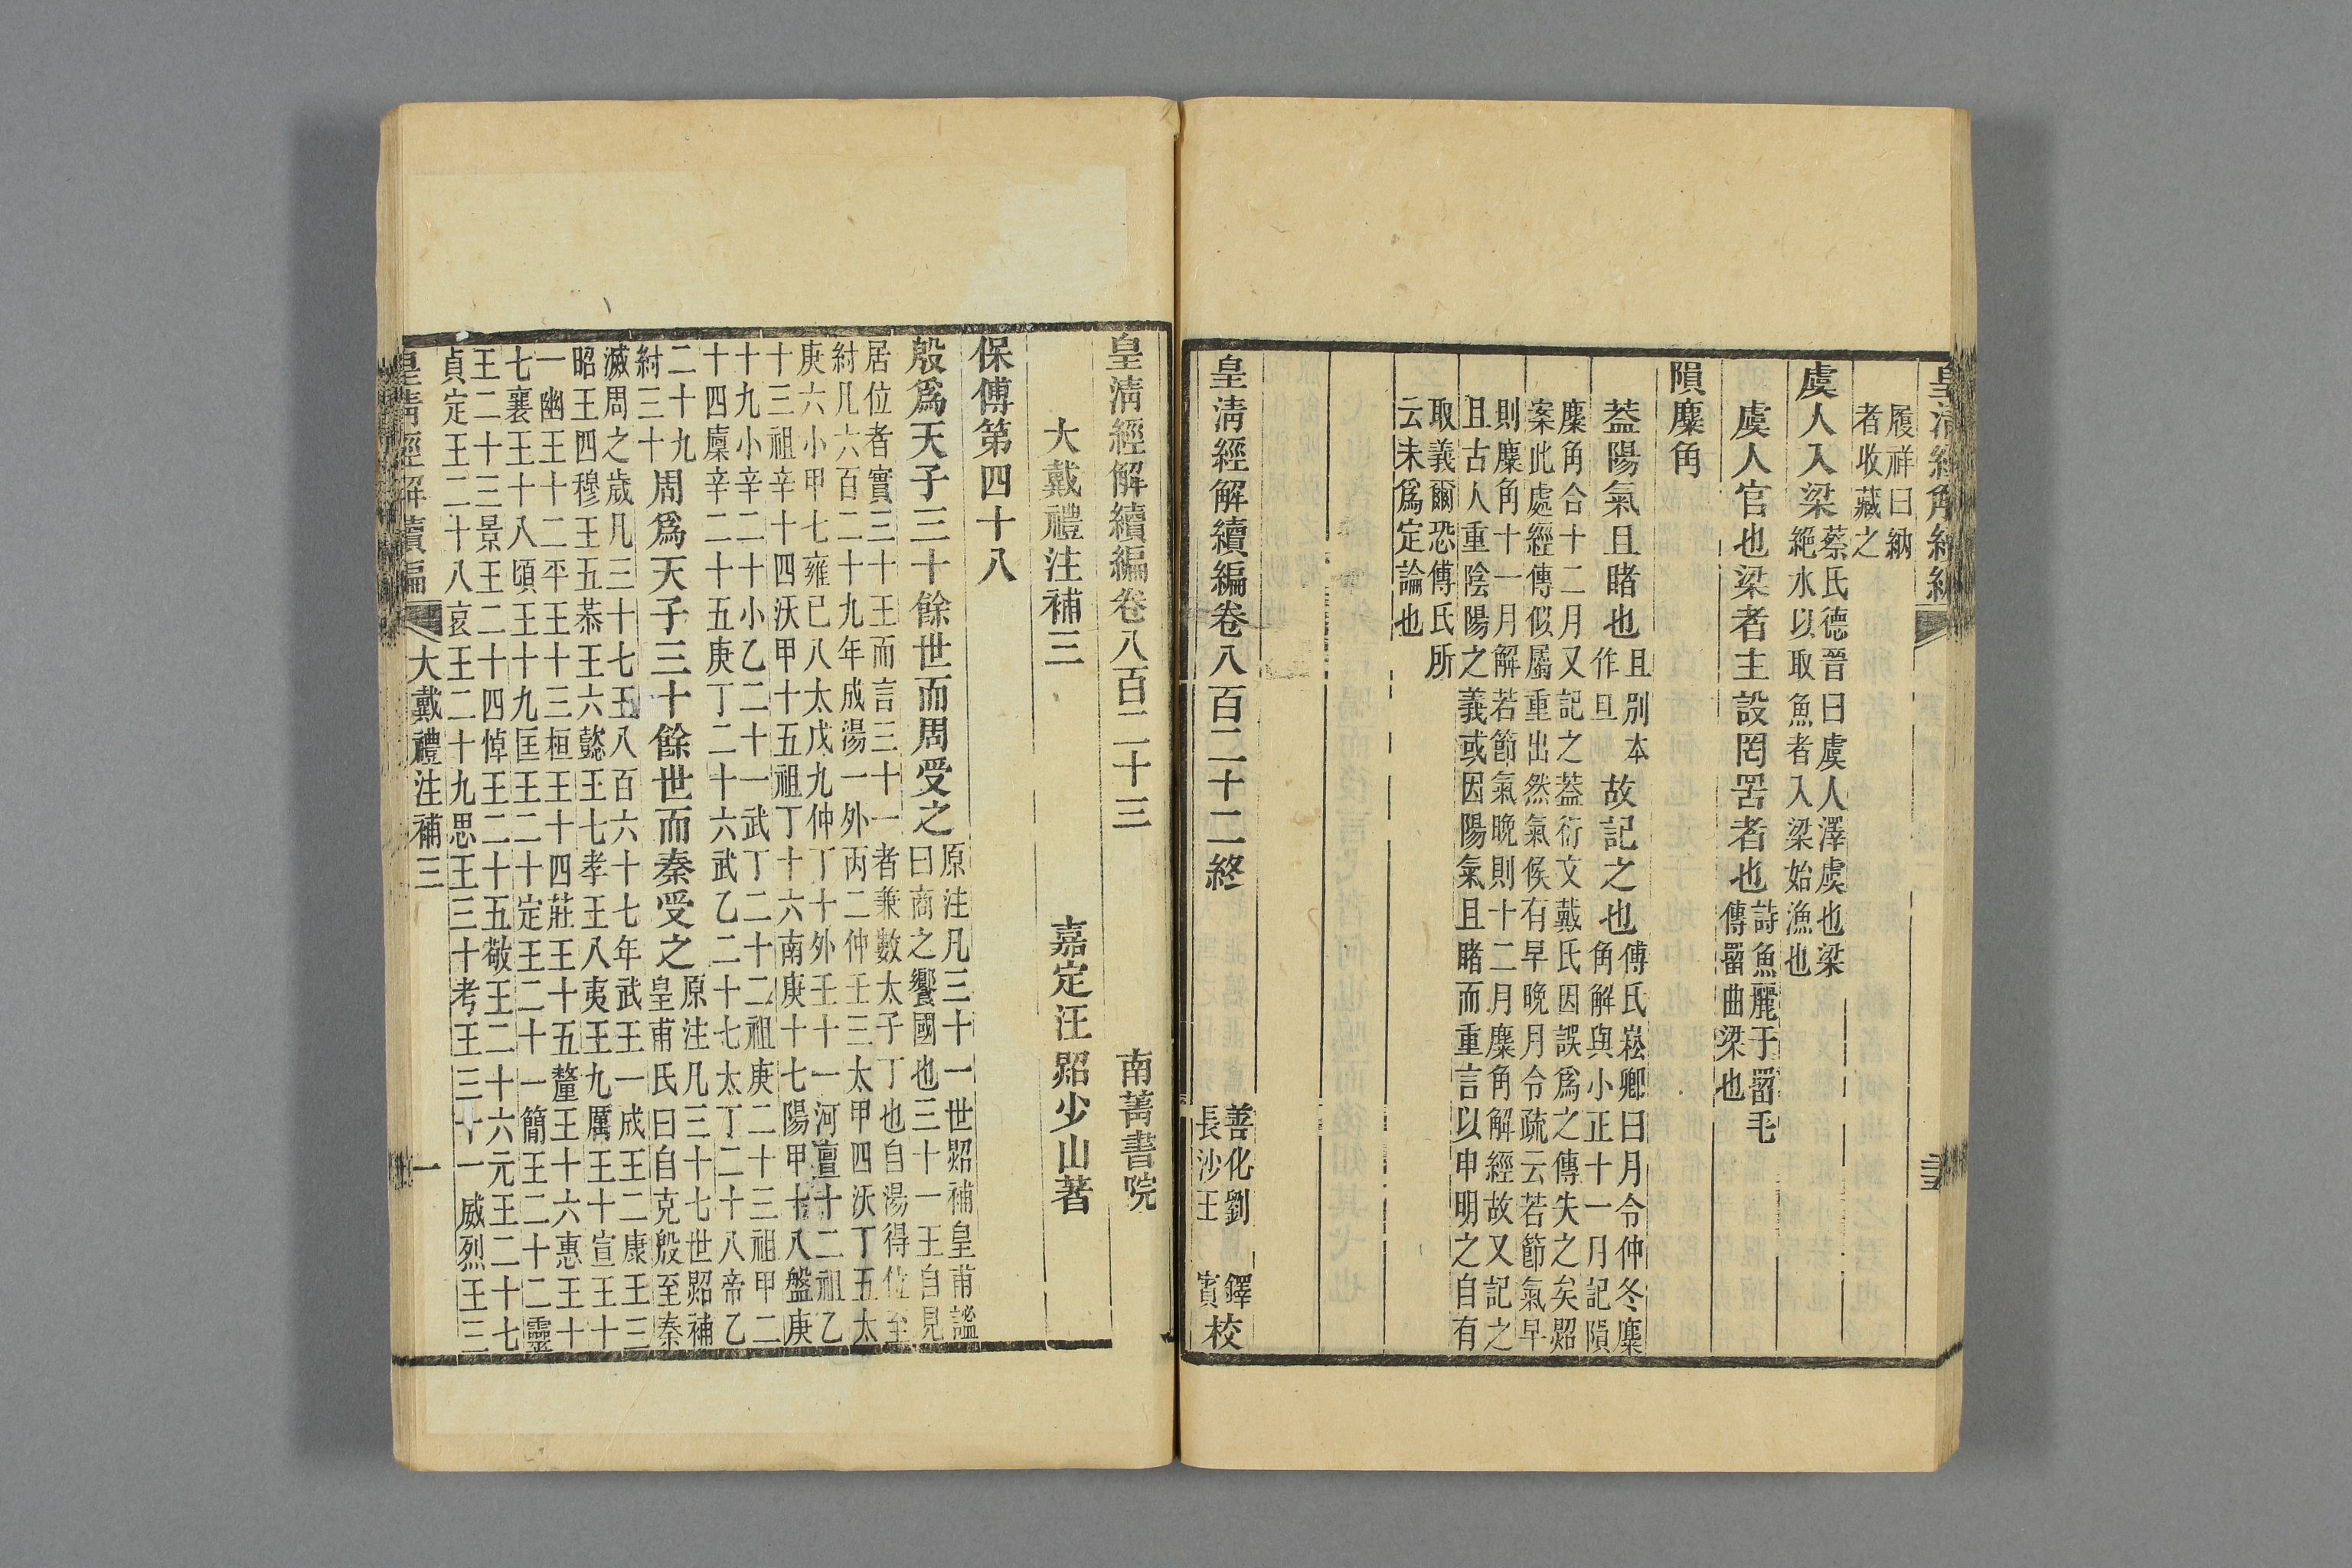 皇清經解續編
履祥曰納
者收藏之
虞人入梁
蔡氏德晉曰虞人澤虞也梁
絶水以取魚者入梁始漁也
虞人官也梁者主設罔罟者也
詩魚麗于罶毛
傳罶曲梁也
隕麋角
葢陽氣且睹也
且別本
作旦
故記之也
傅氏崧卿曰月令仲冬麋
角解與小正十一月記隕
麋角合十二月又記之葢衍文戴氏因誤爲之傳失之矣炤
案此處經傳似屬重出然氣候有早晚月令疏云若節氣早
則麋角十一月解若節氣晚則十二月麋角解經故又記之
且古人重陰陽之義或因陽氣且睹而重言以申明之自有
取義爾恐傅氏所
云未爲定論也
皇清經解續編卷八百二十二終
善化劉鐸
長沙王賓
校
皇清經解續編卷八百二十三
南菁書院
大戴禮注補三
嘉定汪炤少山著
保傅第四十八
殷爲天子三十餘世而周受之
原注凡三十一世炤補皇甫謐
曰商之饗國也三十一王自見
居位者實三十王而言三十一者兼數太子丁也自湯得位至
紂凡六百二十九年成湯一外丙二仲壬三太甲四沃丁五太
庚六小甲七雍已八太戊九仲丁十外壬十一河亶十二祖乙
十三祖辛十四沃甲十五祖丁十六南庚十七陽甲十八盤庚
十九小辛二十小乙二十一武丁二十二祖庚二十三祖甲二
十四廩辛二十五庚丁二十六武乙二十七太丁二十八帝乙
二十九
紂三十
周爲天子三十餘世而秦受之
原注凡三十七世炤補
皇甫氏曰自克殷至秦
滅周之歲凡三十七王八百六十七年武王一成王二康王三
昭王四穆王五恭王六懿王七孝王八夷王九厲王十宣王十
一幽王十二平王十三桓王十四莊王十五釐王十六惠王十
七襄王十八頃王十九匡王二十定王二十一簡王二十二靈
王二十三景王二十四悼王二十五敬王二十六元王二十七
貞定王二十八哀王二十九思王三十考王三十一威烈王三
皇清經解續編
大戴禮注補三
一